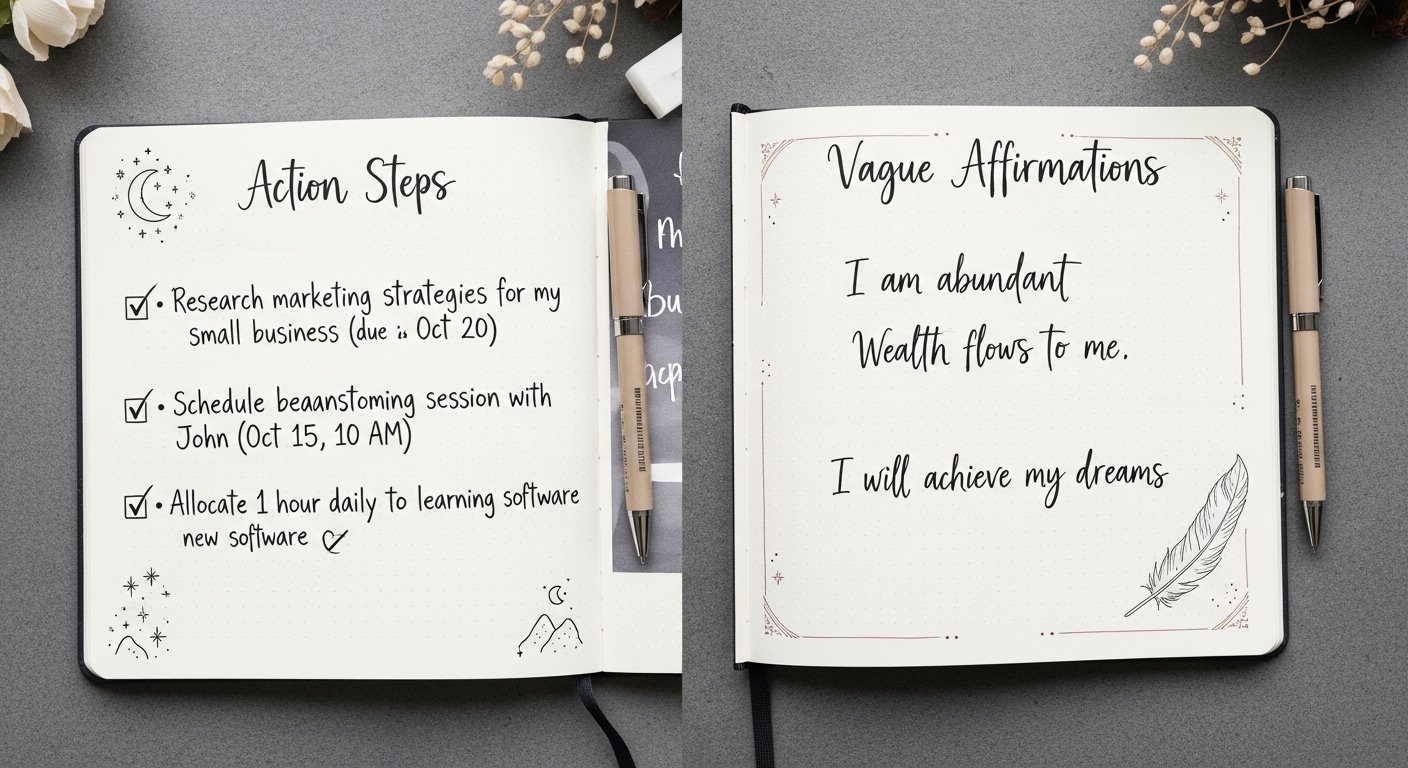 Action Steps
Research marketing strategies for my
small business (due is Oct 20)
Schedule beaanstoming session with
John (Oct 15, 10 AM)
Allocate 1 hour daily to learning software
new software
Vague Affirmations
I am abundant
Wealth flows to me.
I will achieve my dreams